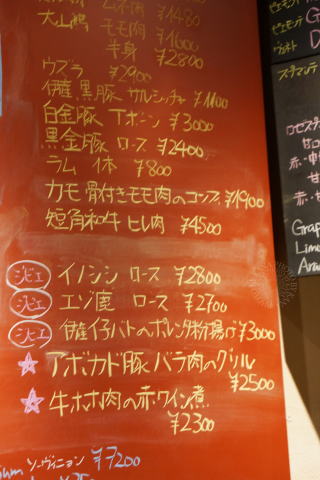 ムネ肉 ¥1480
大山鶏 モモ肉 ¥1600
半身 ¥2800
ウズラ ¥2900
伊産 黒豚 サルシッチャ ¥1100
白金豚 Tボーン ¥3000
黒金豚 ロース ¥2400
ラム 1本 ¥800
カモ 骨付きモモ肉のコンフィ ¥1900
短角和牛 ヒレ肉 ¥4500
ジビエ イノシシ ロース ¥2800
ジビエ エゾ鹿 ロース ¥2700
ジビエ 伊産 仔バトのポレンタ粉揚げ ¥3000
★ アボカド豚 バラ肉のグリル
¥2500
★ 牛ホホ肉の赤ワイン煮
¥2300
ソーヴィニヨン ¥7200
ピエモンテ
ヴェネト
Grap
Lime